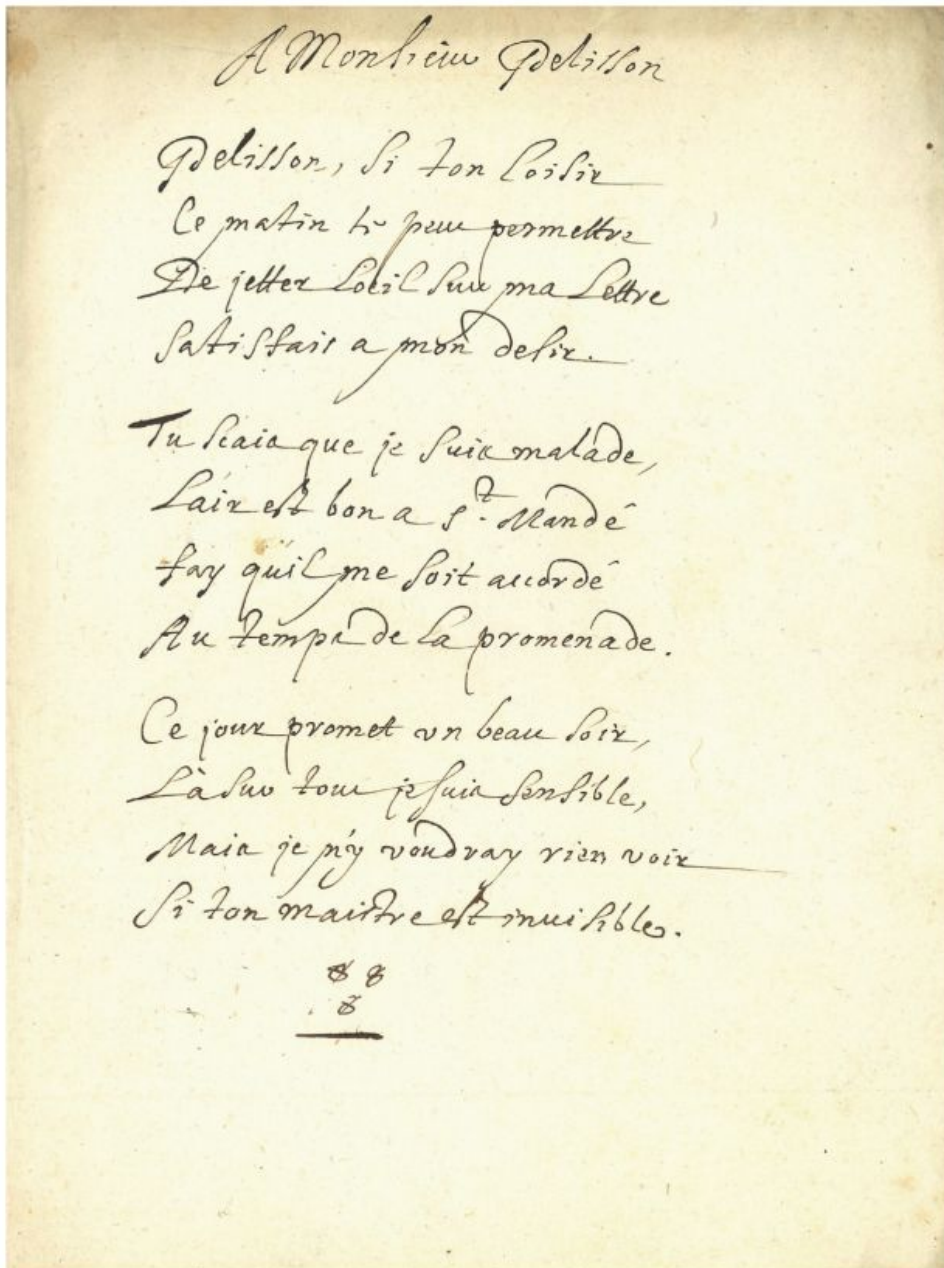 A Monsieur Pelisson
Pelisson, si ton loisir
Ce matin te peut permettre
De jetter loeil sur ma Lettre
Satisfais a mon desir.
Tu scais que je suis malade,
L'air est bon a St. Mandé
fay qu'il me soit accordé
Au temps de la promenade.
Ce jour promet vn beau soir,
Là sur tout je suis sensible,
Mais je n'y voudray rien voir
Si ton maistre est inuisible.